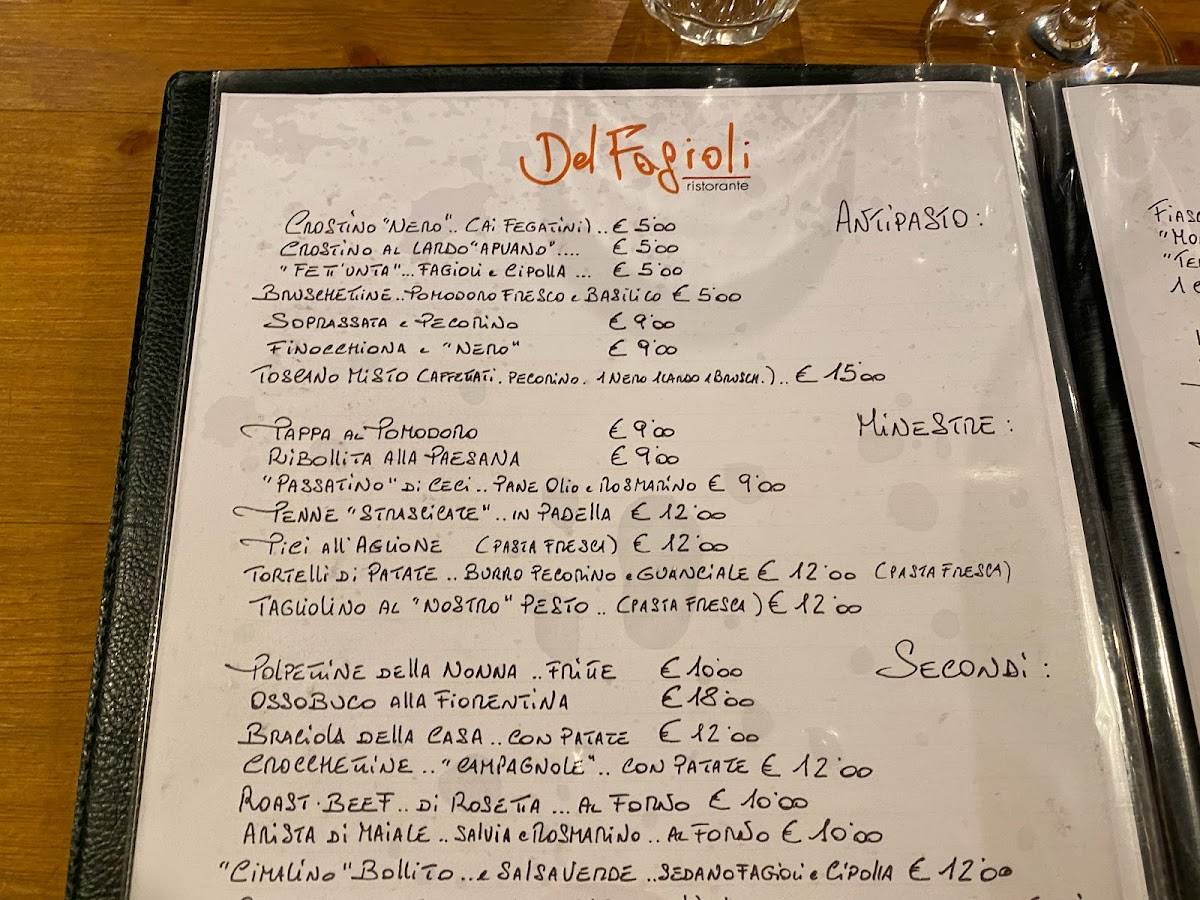 Del Fagioli
ristorante
ANTIPASTO:
CROSTINO "NERO".. (AI FEGATINI).. € 5.00
CROSTINO AL LARDO "APUANO".... € 5.00
"FETT'UNTA"... FAGIOLI e CIPOLLA ... € 5.00
BRUSCHETTINE.. POMODORO FRESCO e BASILICO € 5.00
SOPRASSATA e PECORINO € 9.00
FINOCCHIONA e "NERO" € 9.00
TOSCANO MISTO (AFFETTATI. PECORINO. 1 NERO 1 LARDO 1 BRUSCH.).. € 15.00
MINESTRE:
PAPPA AL POMODORO € 9.00
RIBOLLITA ALLA PAESANA € 9.00
"PASSATINO" DI CECI.. PANE OLIO e ROSMARINO € 9.00
PENNE "STRASCICATE".. IN PADELLA € 12.00
PICI ALL'AGLIONE (PASTA FRESCA) € 12.00
TORTELLI DI PATATE.. BURRO PECORINO e GUANCIALE € 12.00 (PASTA FRESCA)
TAGLIOLINO AL "NOSTRO" PESTO.. (PASTA FRESCA) € 12.00
SECONDI:
POLPETTINE DELLA NONNA.. FRITTE € 10.00
OSSOBUCO ALLA FIORENTINA € 18.00
BRACIOLA DELLA CASA.. CON PATATE € 12.00
CROCCHETTINE.. "CAMPAGNOLE".. CON PATATE € 12.00
ROAST-BEEF.. DI ROSETTA ... AL FORNO € 10.00
ARISTA DI MAIALE.. SALVIA e ROSMARINO.. AL FORNO € 10.00
"CIMALINO" BOLLITO.. e SALSA VERDE.. SEDANO FAGIOLI e CIPOLLA € 12.00